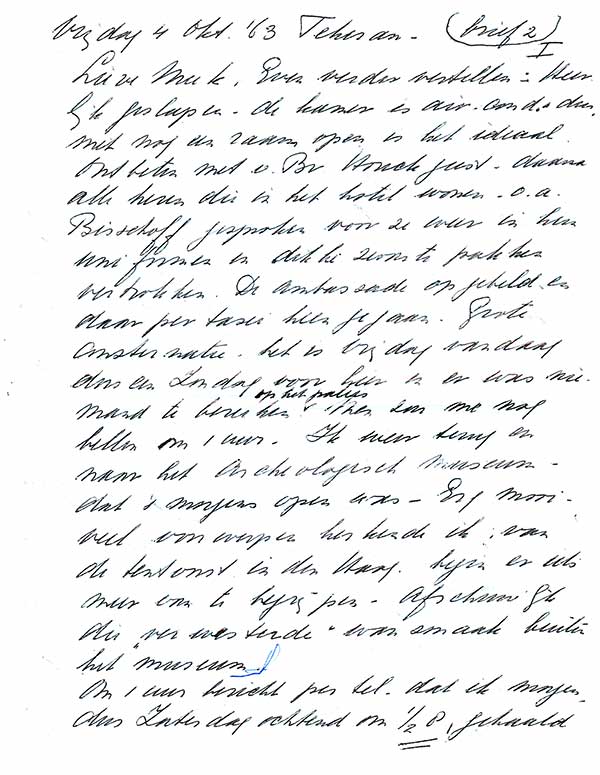 Vrijdag 4 Okt. '63 Teheran - (brief 2)
I
Lieve Meek, Even verder vertellen = Heer-
lijk geslapen - de kamer is air-cond. dus
met nog een raam open is het ideaal.
Ontbeten met v. Br Houckgeest - daarna
alle heren die in het hotel wonen - o.a.
Bisschoff gesproken voor ze weer in hun
uniformen en dikke zwarte pakken
vertrokken. De ambassade opgebeld en
daar per taxi heen gegaan. Grote
consternatie. het is vrijdag vandaag
dus een Zondag voor hier en er was nie-
op het paleis
mand te bereiken. Men zou me nog
bellen om 1 uur. Ik weer terug en
naar het Archeologisch museum -
dat 's morgens open was - Erg mooi -
veel voorwerpen herkende ik, van
de tentoonst. in den Haag. begin er iets
meer van te begrijpen - Afschuwelijk
die "verwesterde" wansmaak buiten
het museum
Om 1 uur bericht per tel. dat ik morgen,
dus Zaterdag ochtend om 1/2 8, gehaald